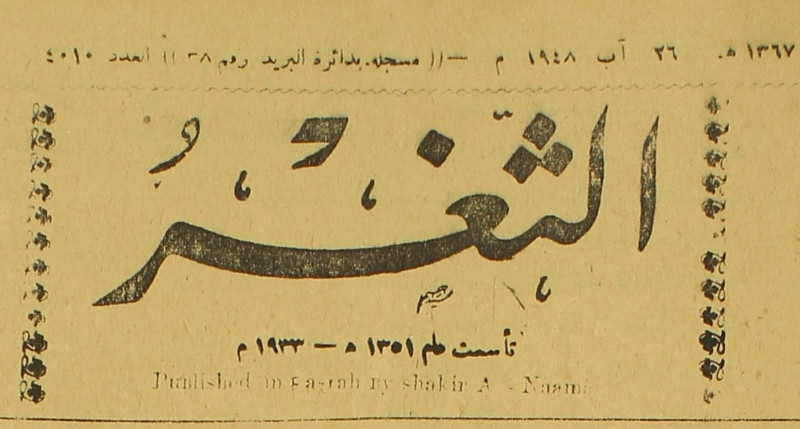 ١٣٦٧ هـ. ٢٦ آب ١٩٤٨ م —(( مسجله بدائرة البريد رقم ٣٨ )) العدد ٤٠١٠
الثَّغْرُ
تأسست عام ١٣٥١ هـ — ١٩٣٣ م
Published in Basrah by shakir A - Naama